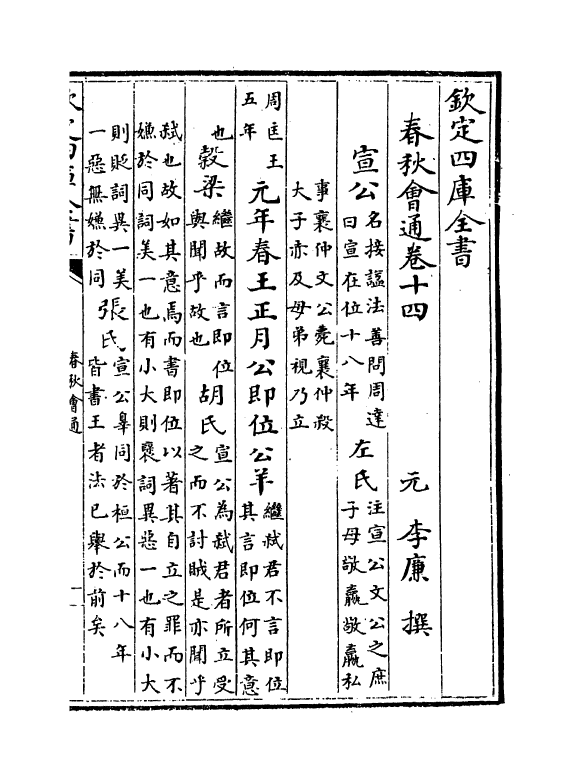 欽定四庫全書
春秋會通卷十四　元　李廉　撰
宣公名接諡法善問周達
曰宣在位十八年左氏注宣公文公之庶
子母敬嬴敬嬴私
事襄仲文公薨襄仲殺
大子赤及母弟視乃立
周匡王
五年
元年春王正月公即位公羊繼弒君不言即位
其言即位何其意
也穀梁繼故而言即位
與聞乎故也胡氏宣公為弒君者所立受
之而不討賊是亦聞乎
弒也故如其意焉而書即位以著其自立之罪而不
嫌於同詞美一也有小大則襃詞異惡一也有小大
則貶詞異一美
一惡無嫌於同張氏宣公辠同於桓公而十八年
皆書王者法已舉於前矣
春秋會通
一